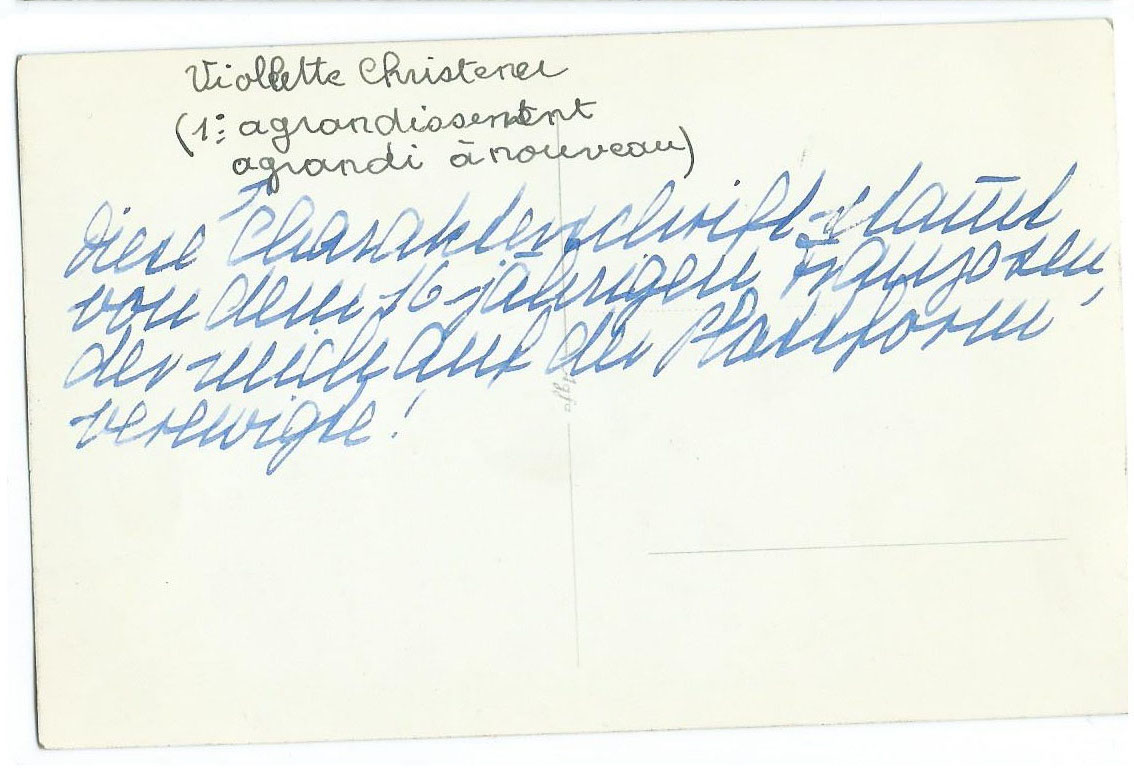 Viollette Christener
(1: agrandissement
agrandi à nouveau)
Diese Charakterschrift stammt
von dem 16-jährigen Franzosen,
der mich auf der Plattform
verewigte!
Agfa